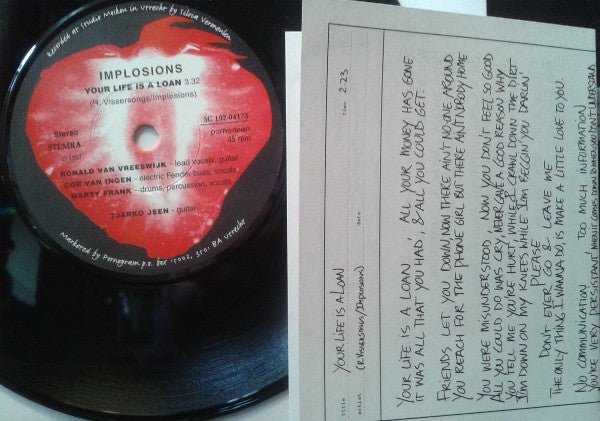 Recorded at Studio Moskou in Utrecht by Silvia Vermeulen
IMPLOSIONS
YOUR LIFE IS A LOAN 3.32
(R. Vissersongs/Implosions)
Stereo
STEMRA
1997
5C 192-04175
porno-teen
45 rpm
RONALD VAN VREESWIJK - lead vocals, guitar
COR VAN INGEN - electric Fender bass, vocals
MARTY FRANK - drums, percussion, vocals
TJARKO JEEN - guitar
Marketed by Pornogram p.e. box 15002, 3501 BA Utrecht
title YOUR LIFE IS A LOAN
time 2.23
artist (R.VISSERSONGS/IMPLOSIONS)
date
YOUR LIFE IS A LOAN, ALL YOUR MONEY HAS GONE
IT WAS ALL THAT YOU HAD, & ALL YOU COULD GET.
FRIENDS LET YOU DOWN, NOW THERE AIN'T NO ONE AROUND
YOU REACH FOR THE PHONE GIRL BUT THERE AINT NOBODY HOME
YOU WERE MISUNDERSTOOD, NOW YOU DON'T FEEL SO GOOD
ALL YOU COULD DO WAS CRY, NEVER GAVE A GOOD REASON WHY
YOU TELL ME YOU'RE HURT, WHILE I CRAWL DOWN THE DIRT
I'M DOWN ON MY KNEES WHILE I'M BEGGIN YOU DARLIN'
PLEASE
DON'T EVER GO & LEAVE ME
THE ONLY THING I WANNA DO, IS MAKE A LITTLE LOVE TO YOU.
NO COMMUNICATION, TOO MUCH INFORMATION
YOU'RE VERY PERSISTANT WHEN IT COMES DOWN TO WHEN YOU DON'T UNDERSTAND